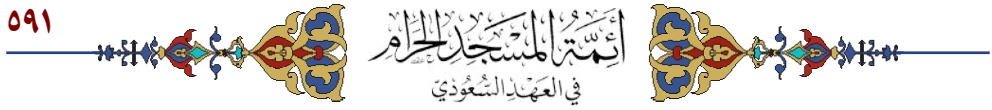 ٥٩١
أَئِمَّةُ المَسْجِدِ الحَرَامِ
فِي العَهْدِ السُّعُودِيّ